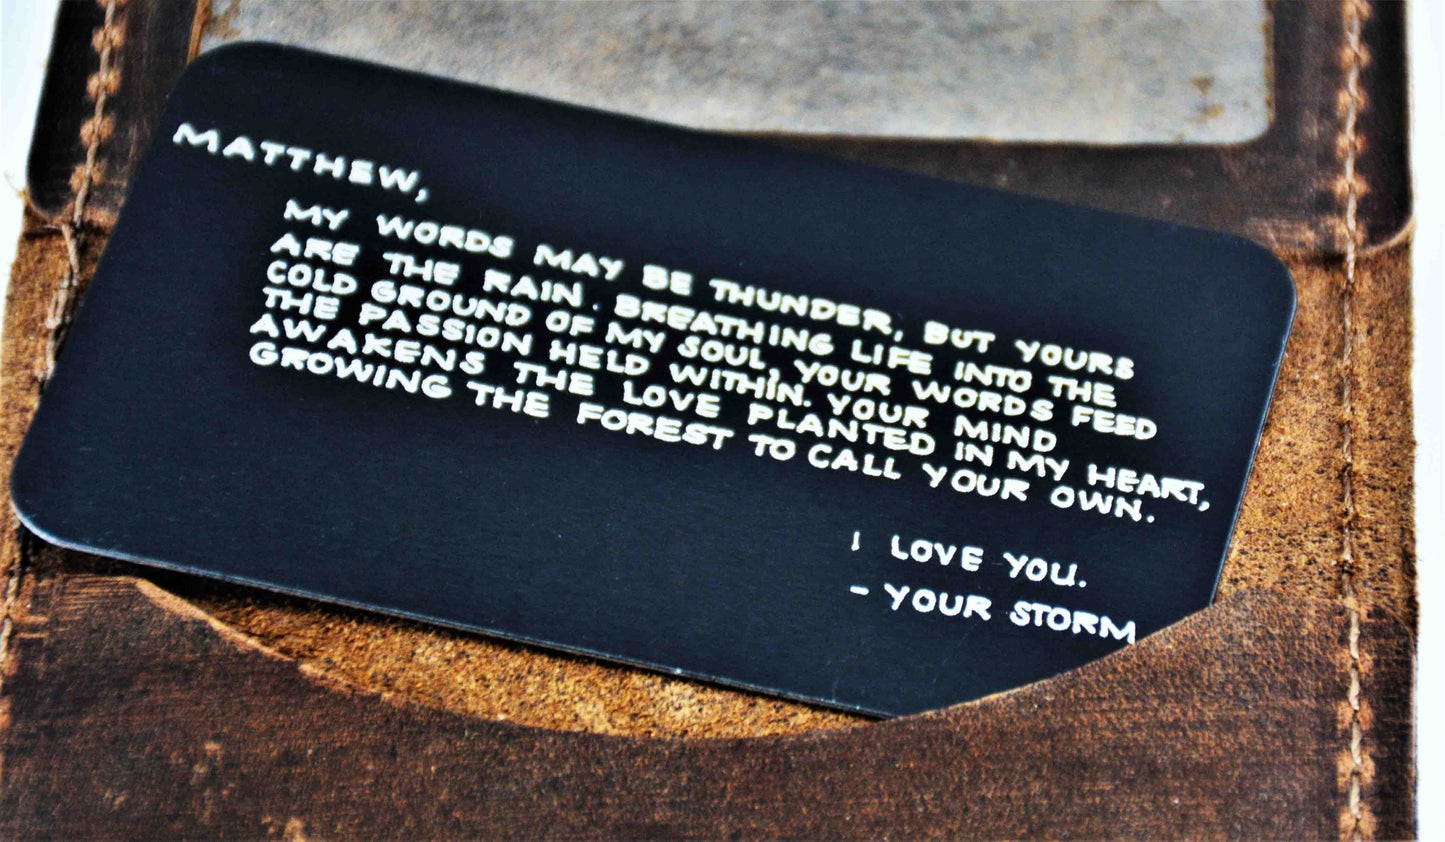 MATTHEW,
MY WORDS MAY BE THUNDER, BUT YOURS
ARE THE RAIN. BREATHING LIFE INTO THE
COLD GROUND OF MY SOUL, YOUR WORDS FEED
THE PASSION HELD WITHIN. YOUR MIND
AWAKENS THE LOVE PLANTED IN MY HEART,
GROWING THE FOREST TO CALL YOUR OWN.
I LOVE YOU.
- YOUR STORM